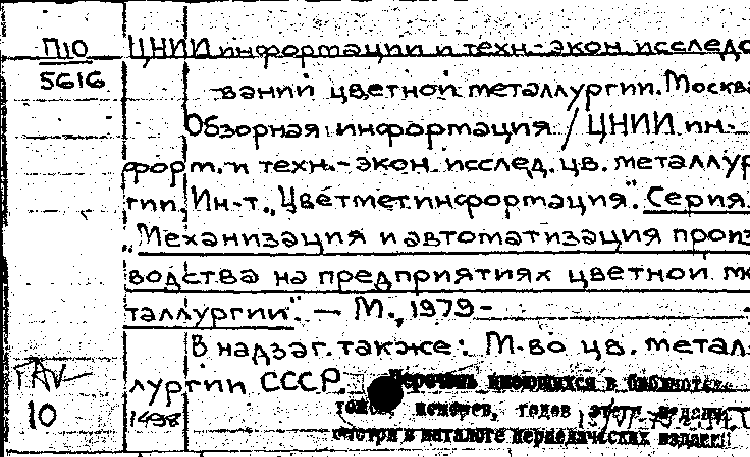 П10 ЦНИИ информации и техн.-экон. исследо
5616 ваний цветной металлургии. Москва
Обзорная информация / ЦНИИ ин-
форм. и техн.-экон. исслед. цв. металлур
гии. Ин-т „Цветметинформация". Серия
„Механизация и автоматизация произ
водства на предприятиях цветной ме
таллургии". — М., 1979-
В надзаг. также: М-во цв. метал-
лургии СССР.
Перечень имеющихся в библиотеке
10 1498 томов, номеров, годов этого издания
смотри в каталоге периодических изданий